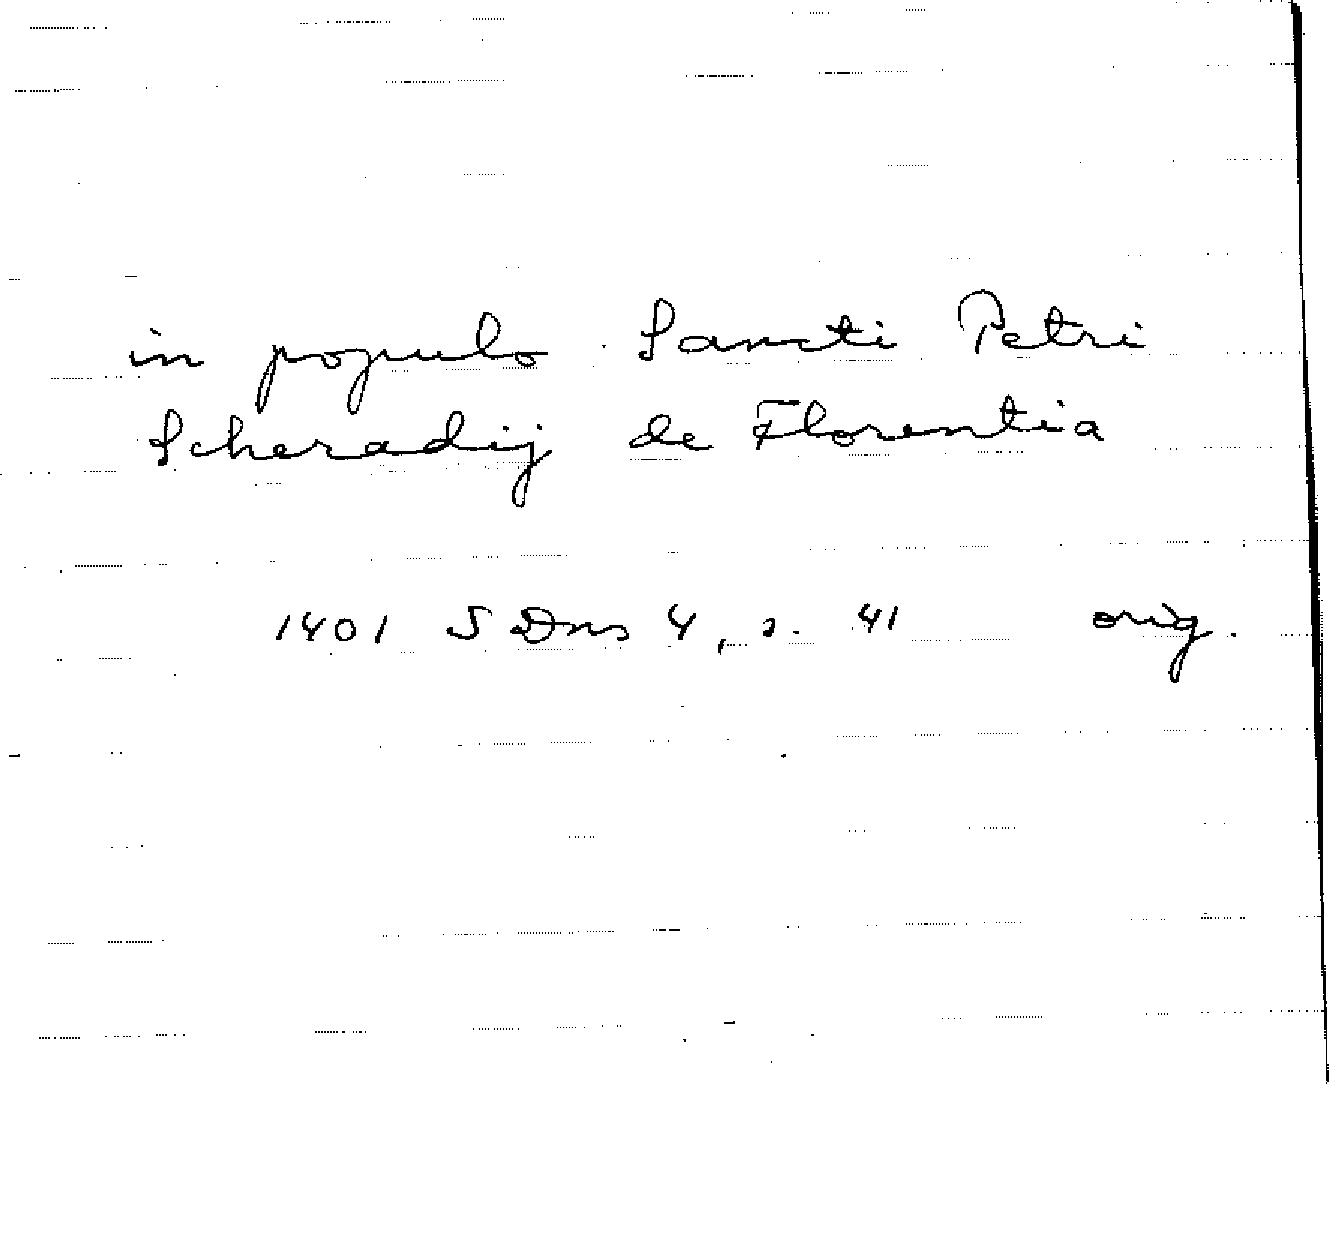 in populo Sancti Petri
Scheradij de Florentia
1401 S Dns 4, s. 41 orig.